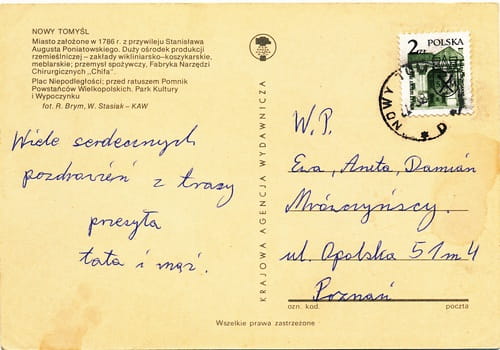 NOWY TOMYŚL
Miasto założone w 1786 r. z przywileju Stanisława
Augusta Poniatowskiego. Duży ośrodek produkcji
rzemieślniczej – zakłady wikliniarsko-koszykarskie,
meblarskie; przemysł spożywczy, Fabryka Narzędzi
Chirurgicznych „Chifa".
Plac Niepodległości; przed ratuszem Pomnik
Powstańców Wielkopolskich. Park Kultury
i Wypoczynku
fot. R. Brym, W. Stasiak – KAW
Wiele serdecznych
pozdrowień z trasy
przesyła
tata i mąż.
KRAJOWA AGENCJA WYDAWNICZA
2 ZŁ
POLSKA
NOWY
W.P.
Ewa, Aneta, Damian
Mrówczyńscy.
ul. Opolska 51 m 4
Poznań
ozn. kod.
poczta
Wszelkie prawa zastrzeżone